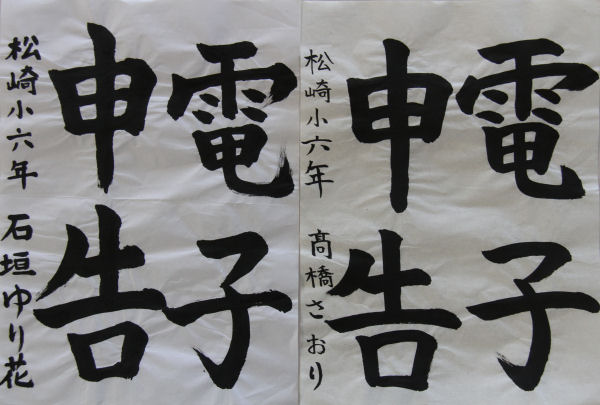 電子
申告
松崎小六年 石垣ゆり花
電子
申告
松崎小六年 髙橋さおり